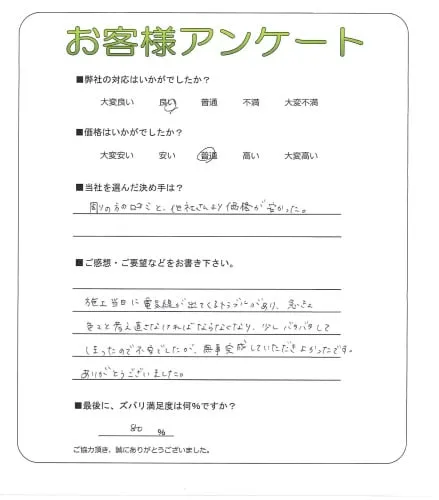 お客様アンケート
■弊社の対応はいかがでしたか？
大変良い 良い 普通 不満 大変不満
■価格はいかがでしたか？
大変安い 安い 普通 高い 大変高い
■当社を選んだ決め手は？
周りの方の口コミと、他社さんより価格が安かった。
■ご感想・ご要望などをお書き下さい。
施工当日に電気線が出てくるトラブルがあり、急きょ
考え直さなければならなくなり、少しバタバタして
しまったので不安でしたが、無事完成していただきよかったです。
ありがとうございました。
■最後に、ズバリ満足度は何%ですか？
80 %
ご協力頂き、誠にありがとうございました。